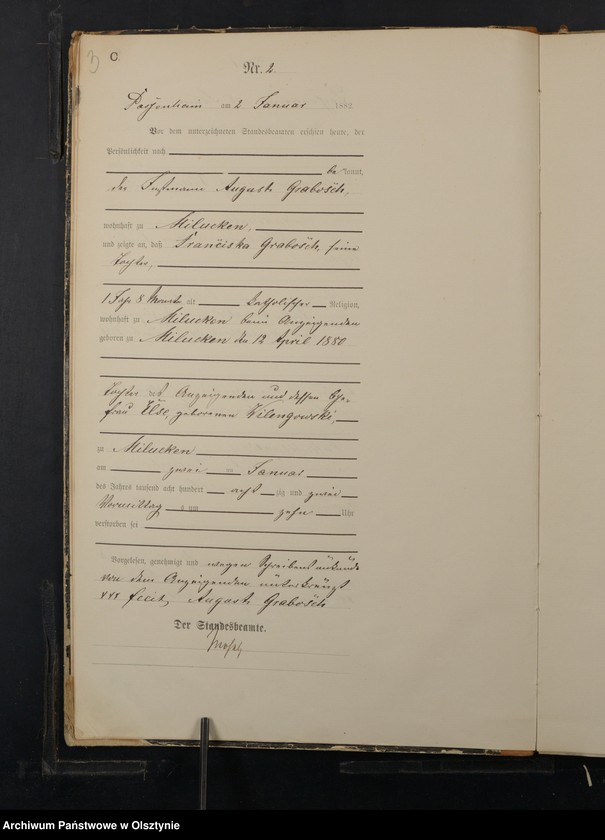 3
C.
Nr. 2
Passenheim am 2 Januar 1882
Vor dem unterzeichneten Standesbeamten erschien heute, der
Persönlichkeit nach
be kannt,
der Instmann August Grabosch,
wohnhaft zu Milucken,
und zeigte an, daß Franciska Grabosch, seine
Tochter,
1 Jahr 8 Monate alt katholischer Religion,
wohnhaft zu Milucken beim Anzeigenden
geboren zu Milucken den 12 April 1880
Tochter des Anzeigenden und dessen Ehe-
frau Else, geborenen
zu Milucken
am zwei ten Januar
des Jahres tausend acht hundert acht zig und zwei
Vormittag s um zehn Uhr
verstorben sei
Vorgelesen, genehmigt und wegen Schreibensunkunde
von dem Anzeigenden unterkreuzt
+++ fecit August Grabosch
Der Standesbeamte.
Archiwum Państwowe w Olsztynie